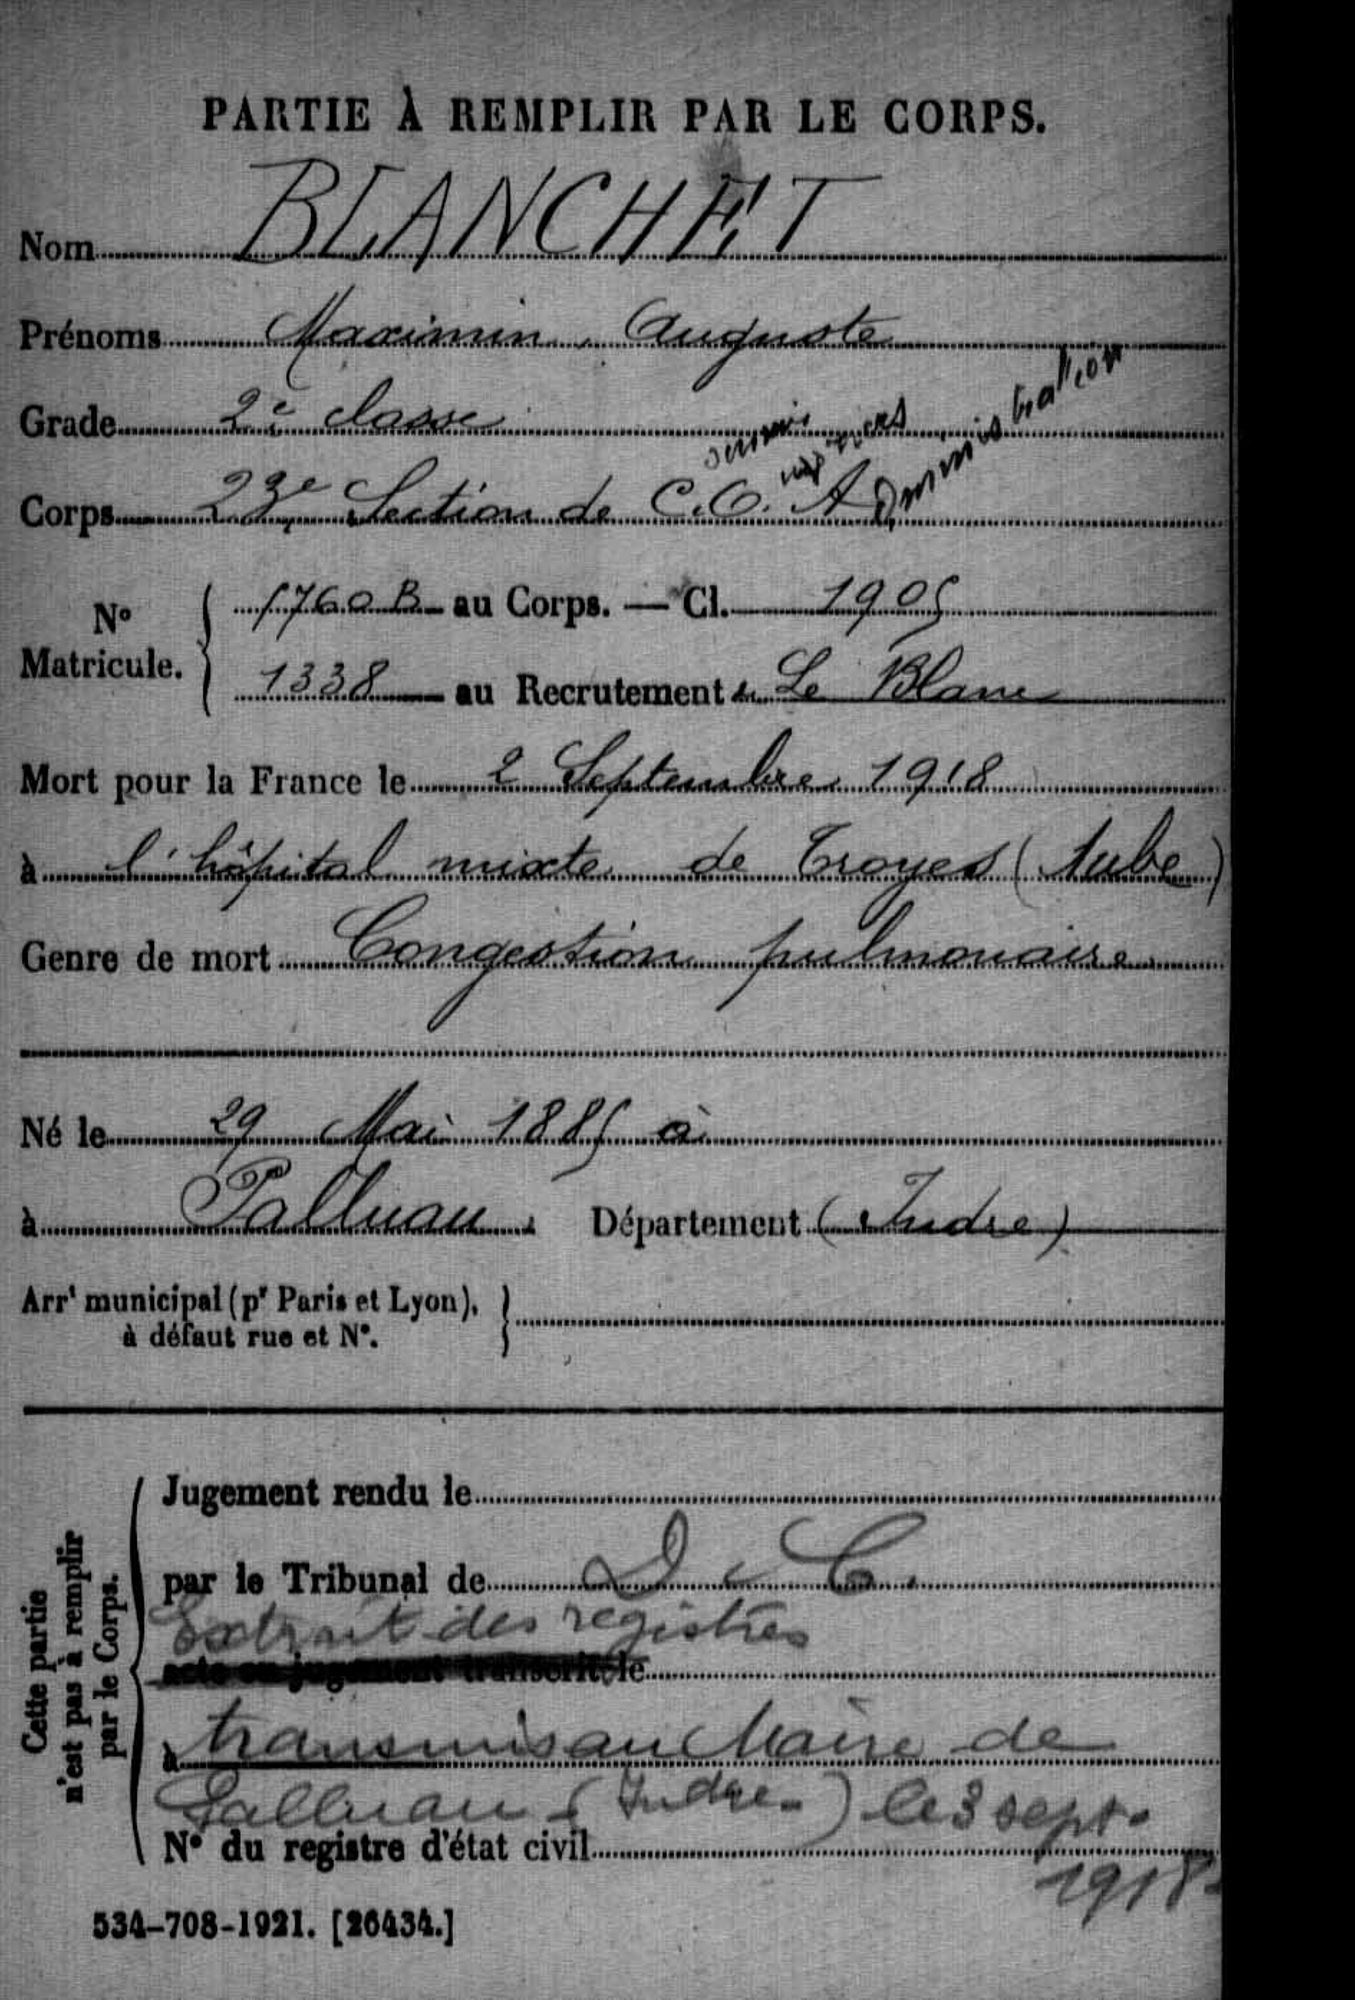 PARTIE À REMPLIR PAR LE CORPS.
Nom BLANCHET
Prénoms Maximin Auguste
Grade 2e classe
Corps 23e Section de C.O. Administration
N° Matricule. 1760 B au Corps. — Cl. 1905
1338 au Recrutement Le Blanc
Mort pour la France le 2 Septembre 1918
à l'hôpital mixte de Troyes (Aube)
Genre de mort Congestion pulmonaire
Né le 29 Mai 1885 à
à Palluau Département (Indre)
Arrt municipal (pr Paris et Lyon),
à défaut rue et N°.
Cette partie
n'est pas à remplir
par le Corps.
Jugement rendu le
par le Tribunal de D C.
Extrait des registres
acte ou jugement transcrit le
à transmis au Maire de
Palluau (Indre) le 3 sept.
N° du registre d'état civil
1918.
534-708-1921. [26434.]